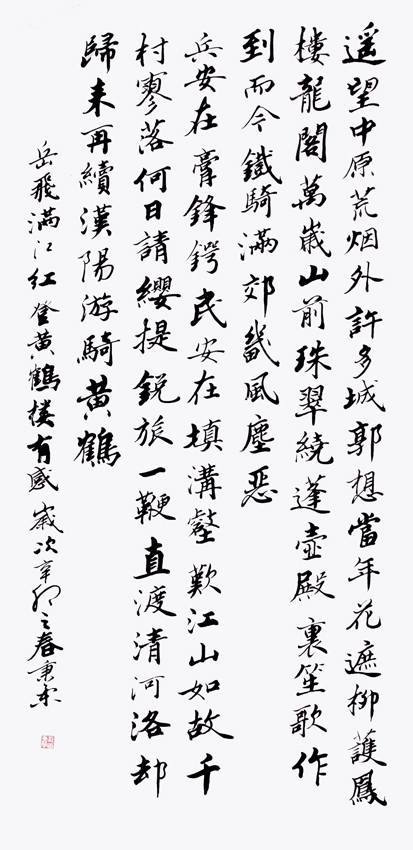 遥望中原荒烟外許多城郭想當年花遮柳護鳳
樓龍閣萬嵗山前珠翠繞蓬壺殿裏笙歌作
到而今鐵騎滿郊畿風塵惡
兵安在膏鋒鍔民安在填溝壑歎江山如故千
村寥落何日請纓提鋭旅一鞭直渡清河洛却
歸来再續漢陽游騎黄鶴
岳飛满江红登黄鶴楼有感嵗次辛卯之春